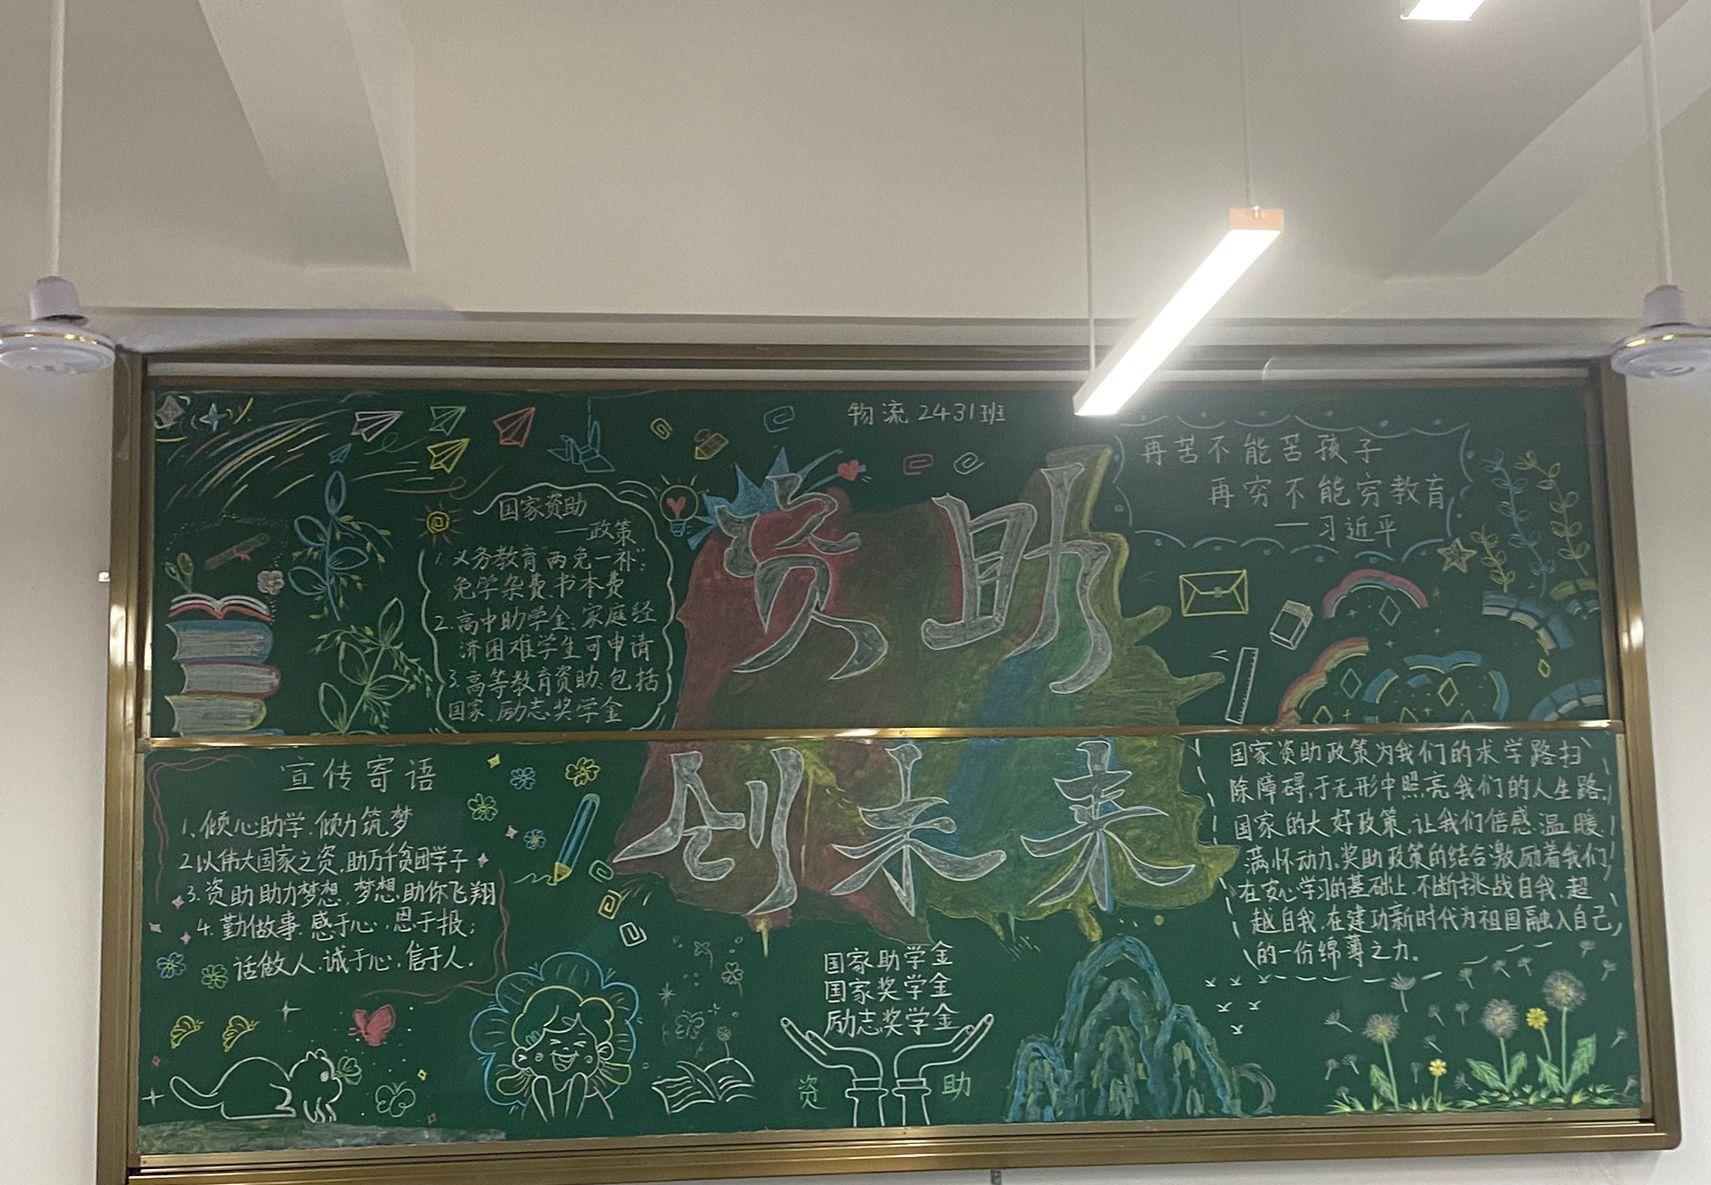 物流2431班
再苦不能苦孩子
再穷不能穷教育
——习近平
国家资助
——政策
1.义务教育"两免一补",
免学杂费、书本费
2.高中助学金、家庭经
济困难学生可申请
3.高等教育资助、包括
国家、励志奖学金
资助
创未来
宣传寄语
1、倾心助学、倾力筑梦
2.以伟大国家之资,助万千贫困学子
3.资助助力梦想,梦想助你飞翔
4.勤做事、感于心,恩于报;
话做人、诚于心,信于人.
国家资助政策为我们的求学路扫
除障碍,于无形中照亮我们的人生路.
国家的大好政策,让我们倍感温暖.
满怀动力,奖助政策的结合激励着我们
在安心学习的基础上,不断挑战自我、超
越自我,在建功新时代为祖国融入自己
的一份绵薄之力.
国家助学金
国家奖学金
励志奖学金
资 助